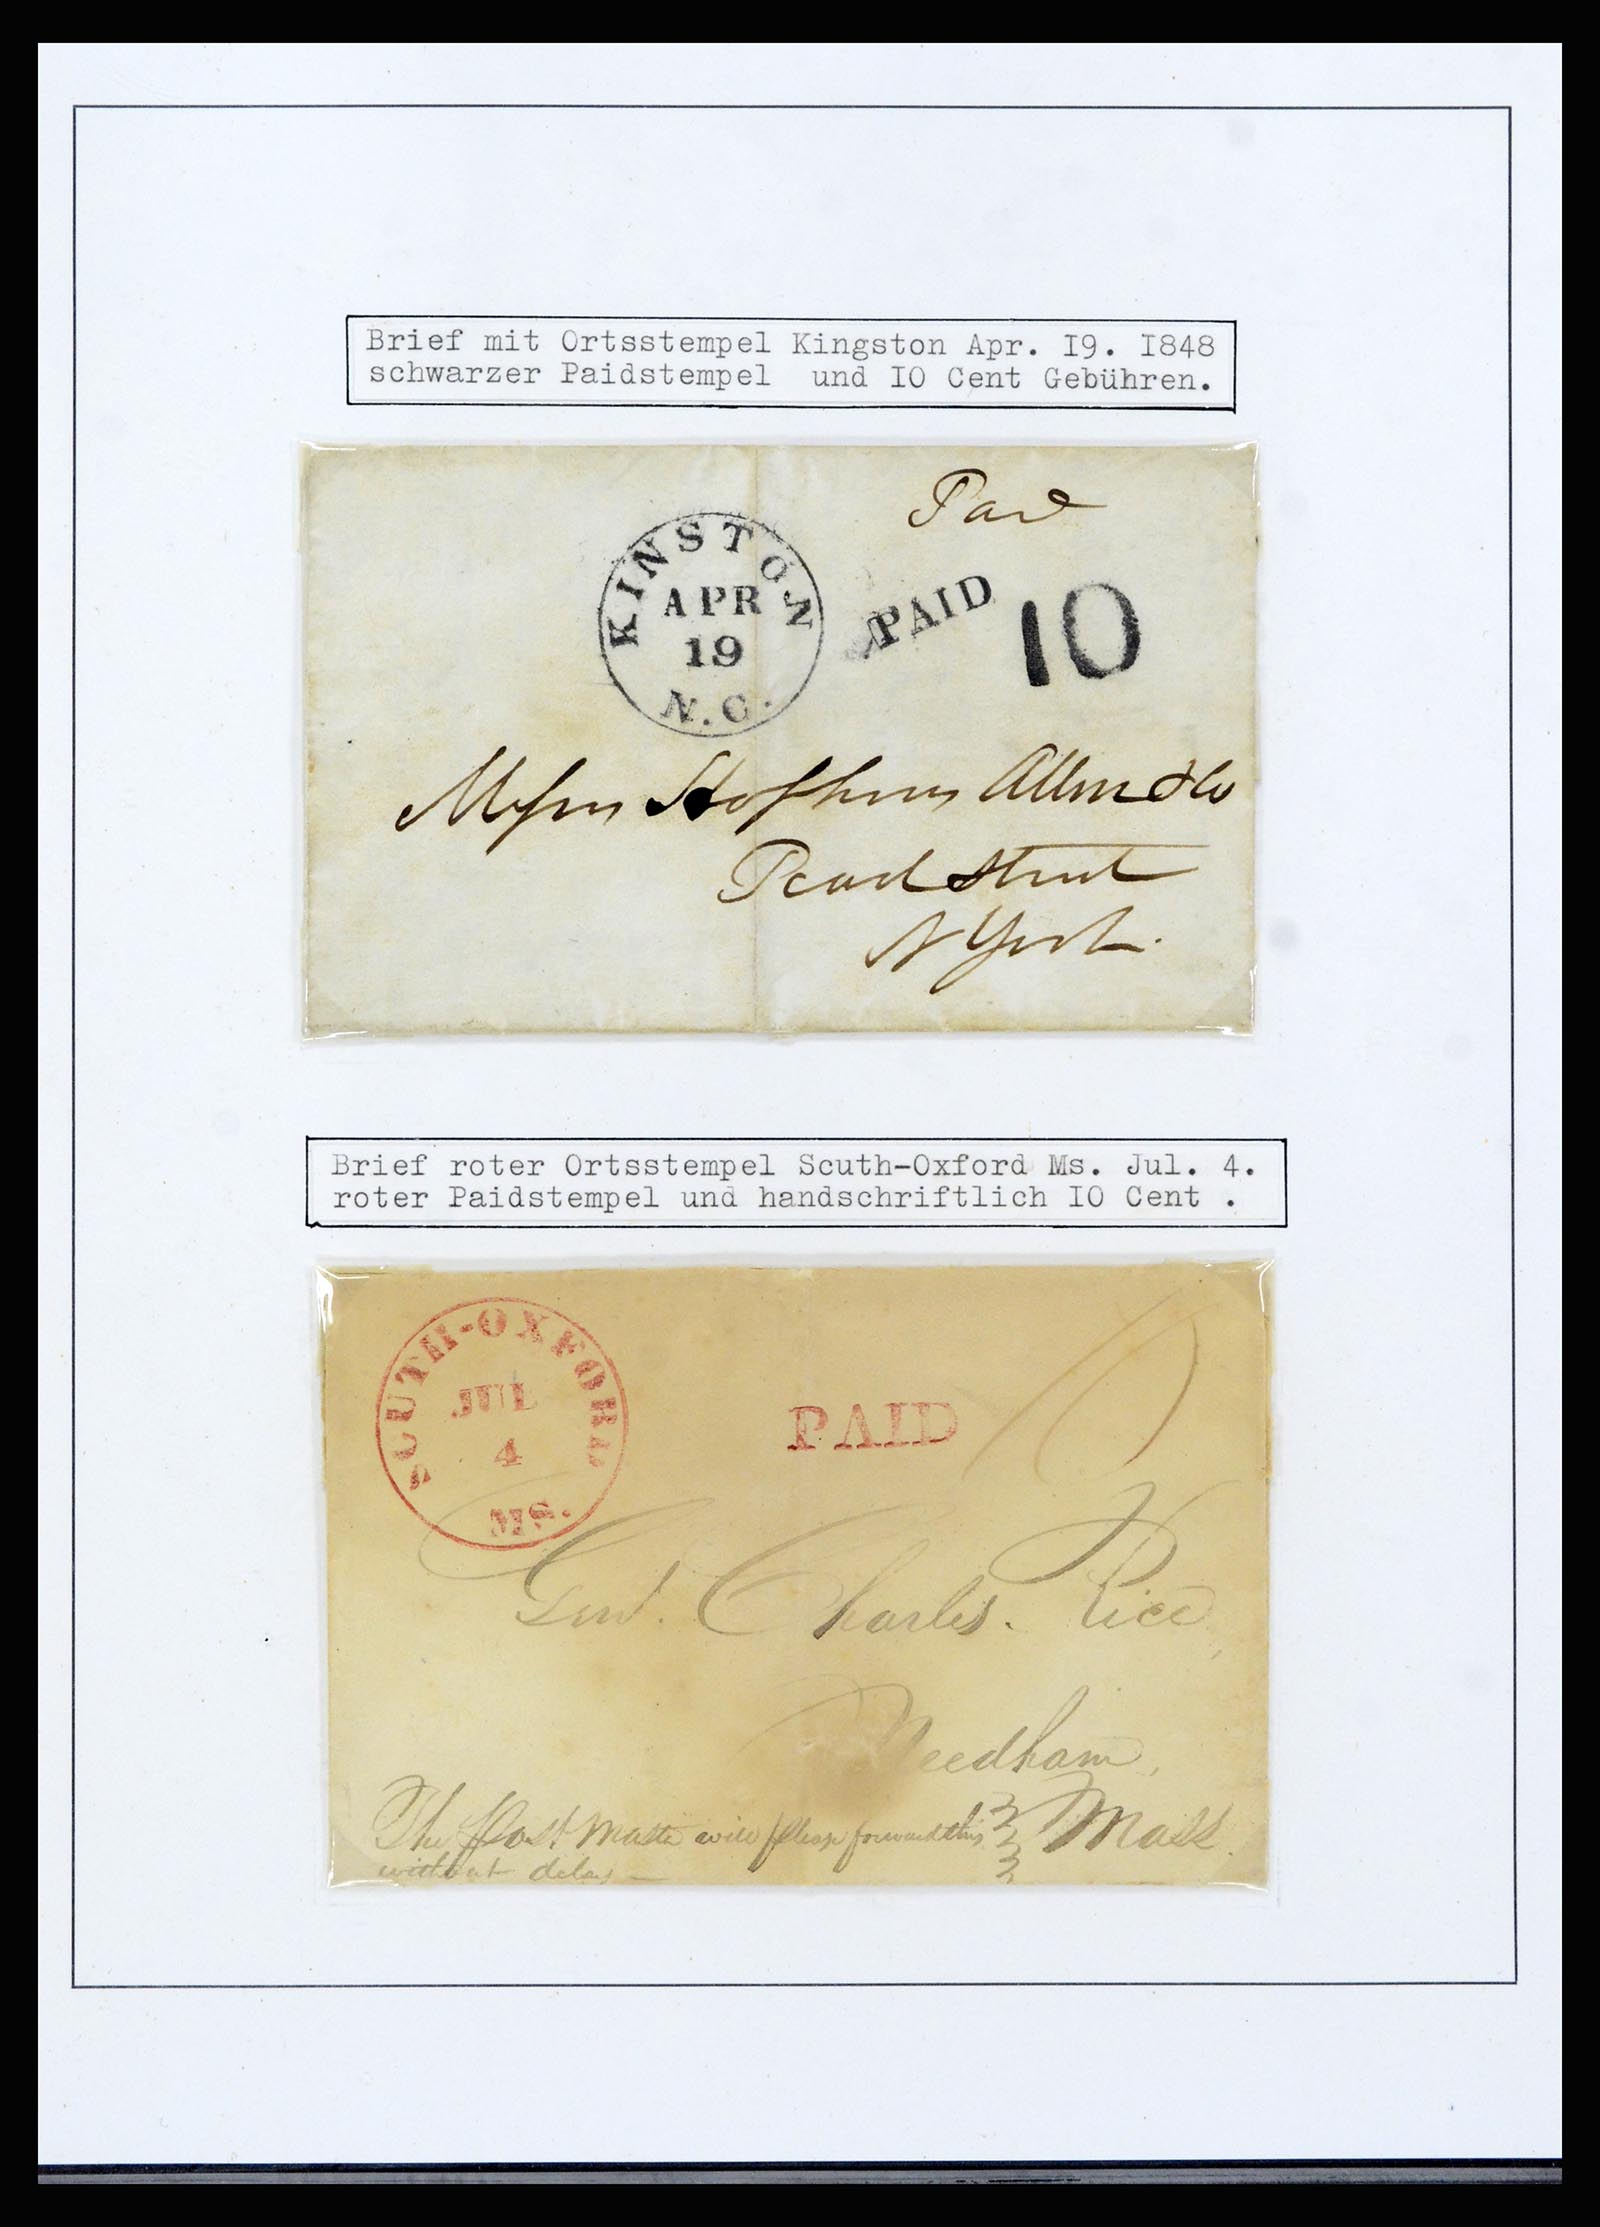 Brief mit Ortsstempel Kingston Apr. I9. I848
schwarzer Paidstempel und IO Cent Gebühren.
Paid
KINSTON
APR
19
N.C.
PAID
10
Messrs Allen & Co
Pearl Street
N York.
Brief roter Ortsstempel Scuth-Oxford Ms. Jul. 4.
roter Paidstempel und handschriftlich IO Cent .
SOUTH-OXFORD
JUL
4
MS.
PAID
10
Genl. Charles. Rice,
Needham,
Mass.
The Post Master will please forward this
without delay —